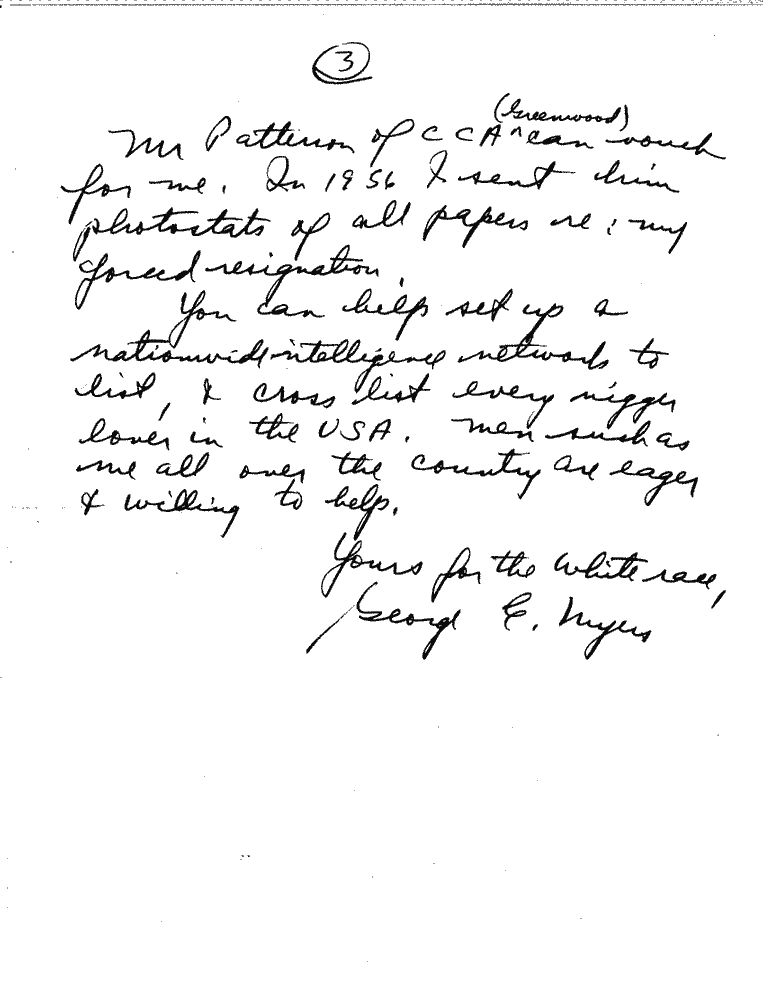 3
(Greenwood)
Mr Patterson of CCA ^ can vouch
for me. In 1956 I sent him
photostats of all papers re: my
forced resignation.
You can help set up a
nationwide intelligence network to
list, & cross list every nigger
lover in the USA. Men such as
me all over the country are eager
& willing to help.
Yours for the white race,
George E. Myers